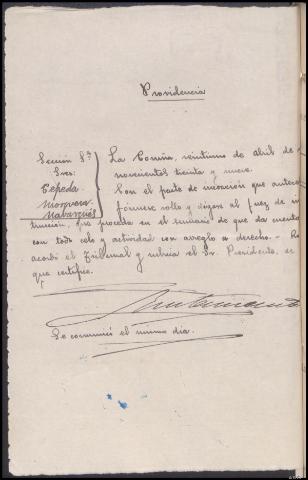 Providencia
Sección 8ª
Sres.
Cepeda
Mosquera
La Coruña, veintiuno de abril de
novecientos treinta y nueve.
Con el parte de incoación que antece
fórmese rollo y dígase al juez de ins
trucción, que proceda en el sumario de que da cuenta
con todo celo y actividad con arreglo a derecho.- Lo
acordó el Tribunal y rubrica el Sr. Presidente, de
que certifico.
Se comunicó el mismo día.